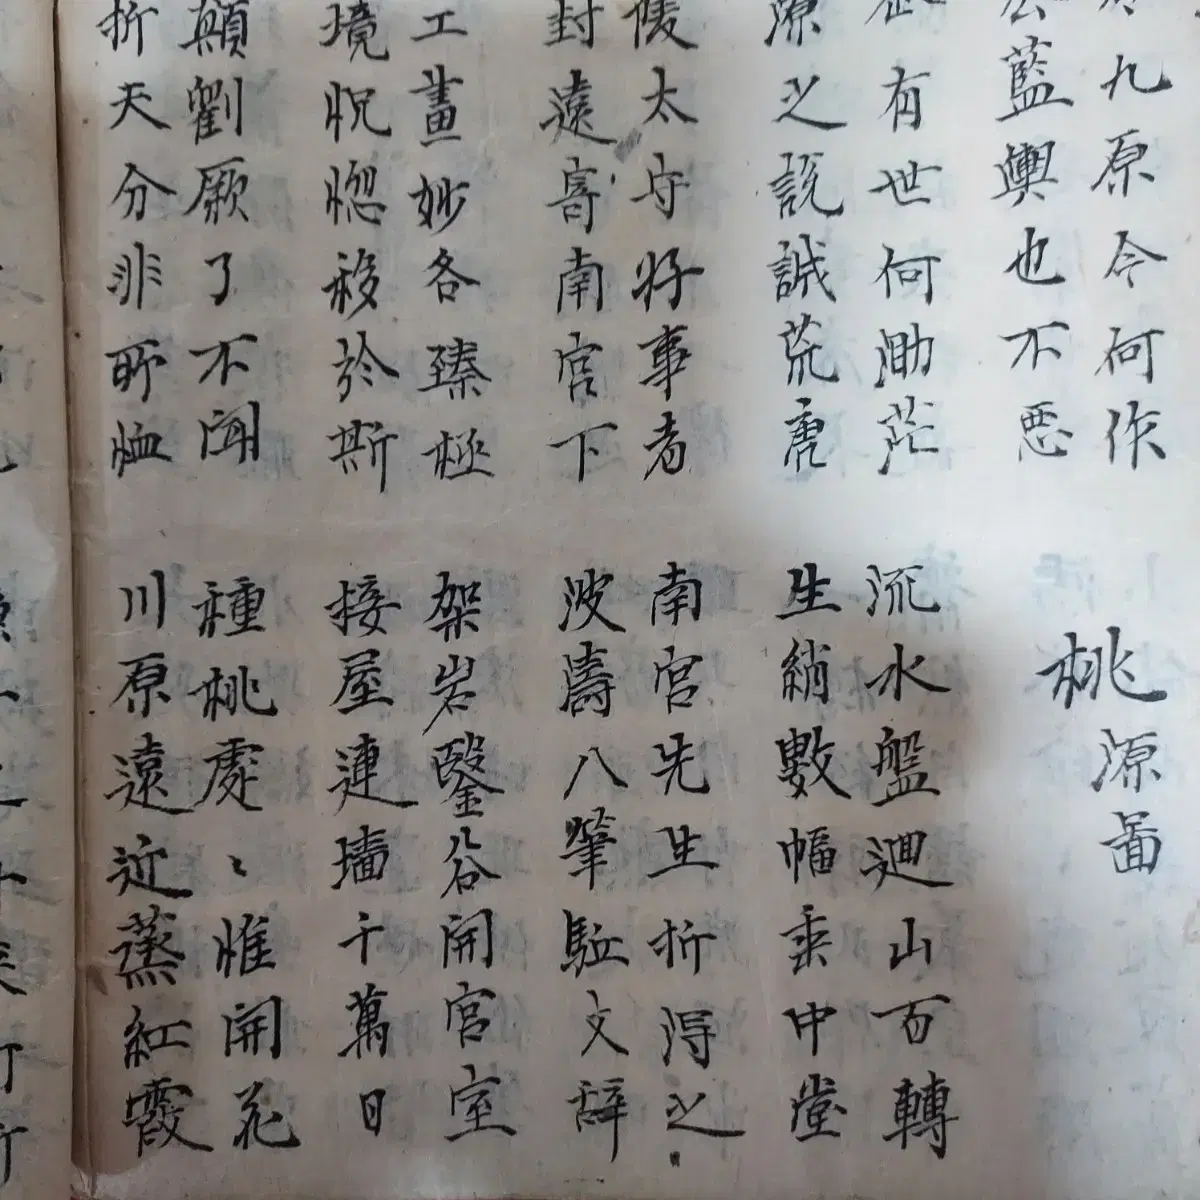 九原今何作
藍輿也不惡
桃源啚
有世何渺茫
源之説誠荒唐
流水盤迴山百轉
生綃數幅垂中堂
陵太守好事者
封遠寄南宮下
南宮先生折得之
波濤八筆駈文辞
工畫妙各臻極
境怳惚移於斯
架岩鑿谷開宮室
接屋連墻千萬日
顛劉厥了不聞
折天分非所恤
種桃處〻惟開花
川原遠近蒸紅霞